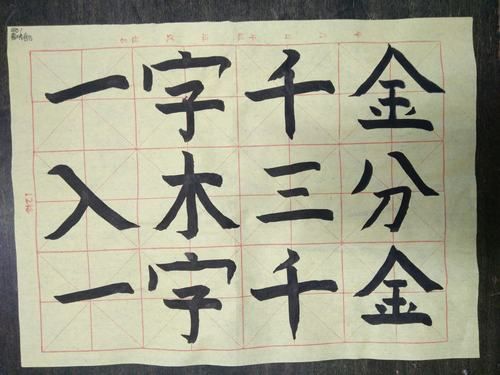 一字千金
入木三分
一字千金